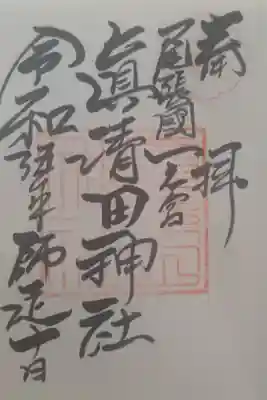 奉拝
尾張國一之宮
眞清田神社
令和弐年師走十日